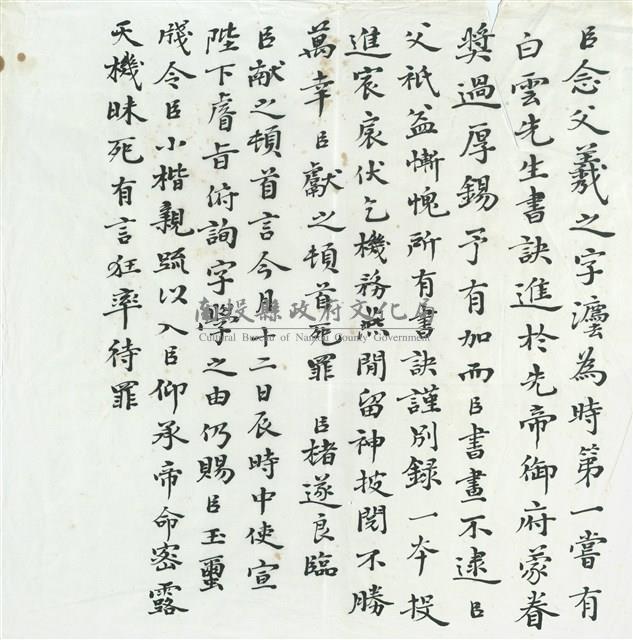 臣念父羲之字灋為時第一嘗有
白雲先生書訣進於先帝御府蒙眷
獎過厚錫予有加而臣書畫不逮臣
父祇益慚愧所有書訣謹別錄一本投
進宸扆伏乞機務燕閒留神披閱不勝
萬幸臣獻之頓首死罪 臣楮遂良臨
臣献之頓首言今月十二日辰時中使宣
陛下睿旨俯詢字學之由仍賜臣玉璽
牋令臣小楷親疏以入臣仰承帝命密露
天機昧死有言狂率待罪
南投縣政府文化局
Cultural Bureau of Nantou County Government